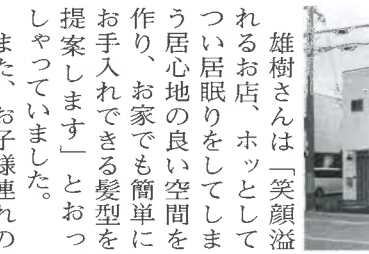 雄樹さんは「笑顔溢
れるお店、ホッとして
つい居眠りをしてしま
う居心地の良い空間を
作り、お家でも簡単に
お手入れできる髪型を
提案します」とおっ
しゃっていました。
また、お子様連れの